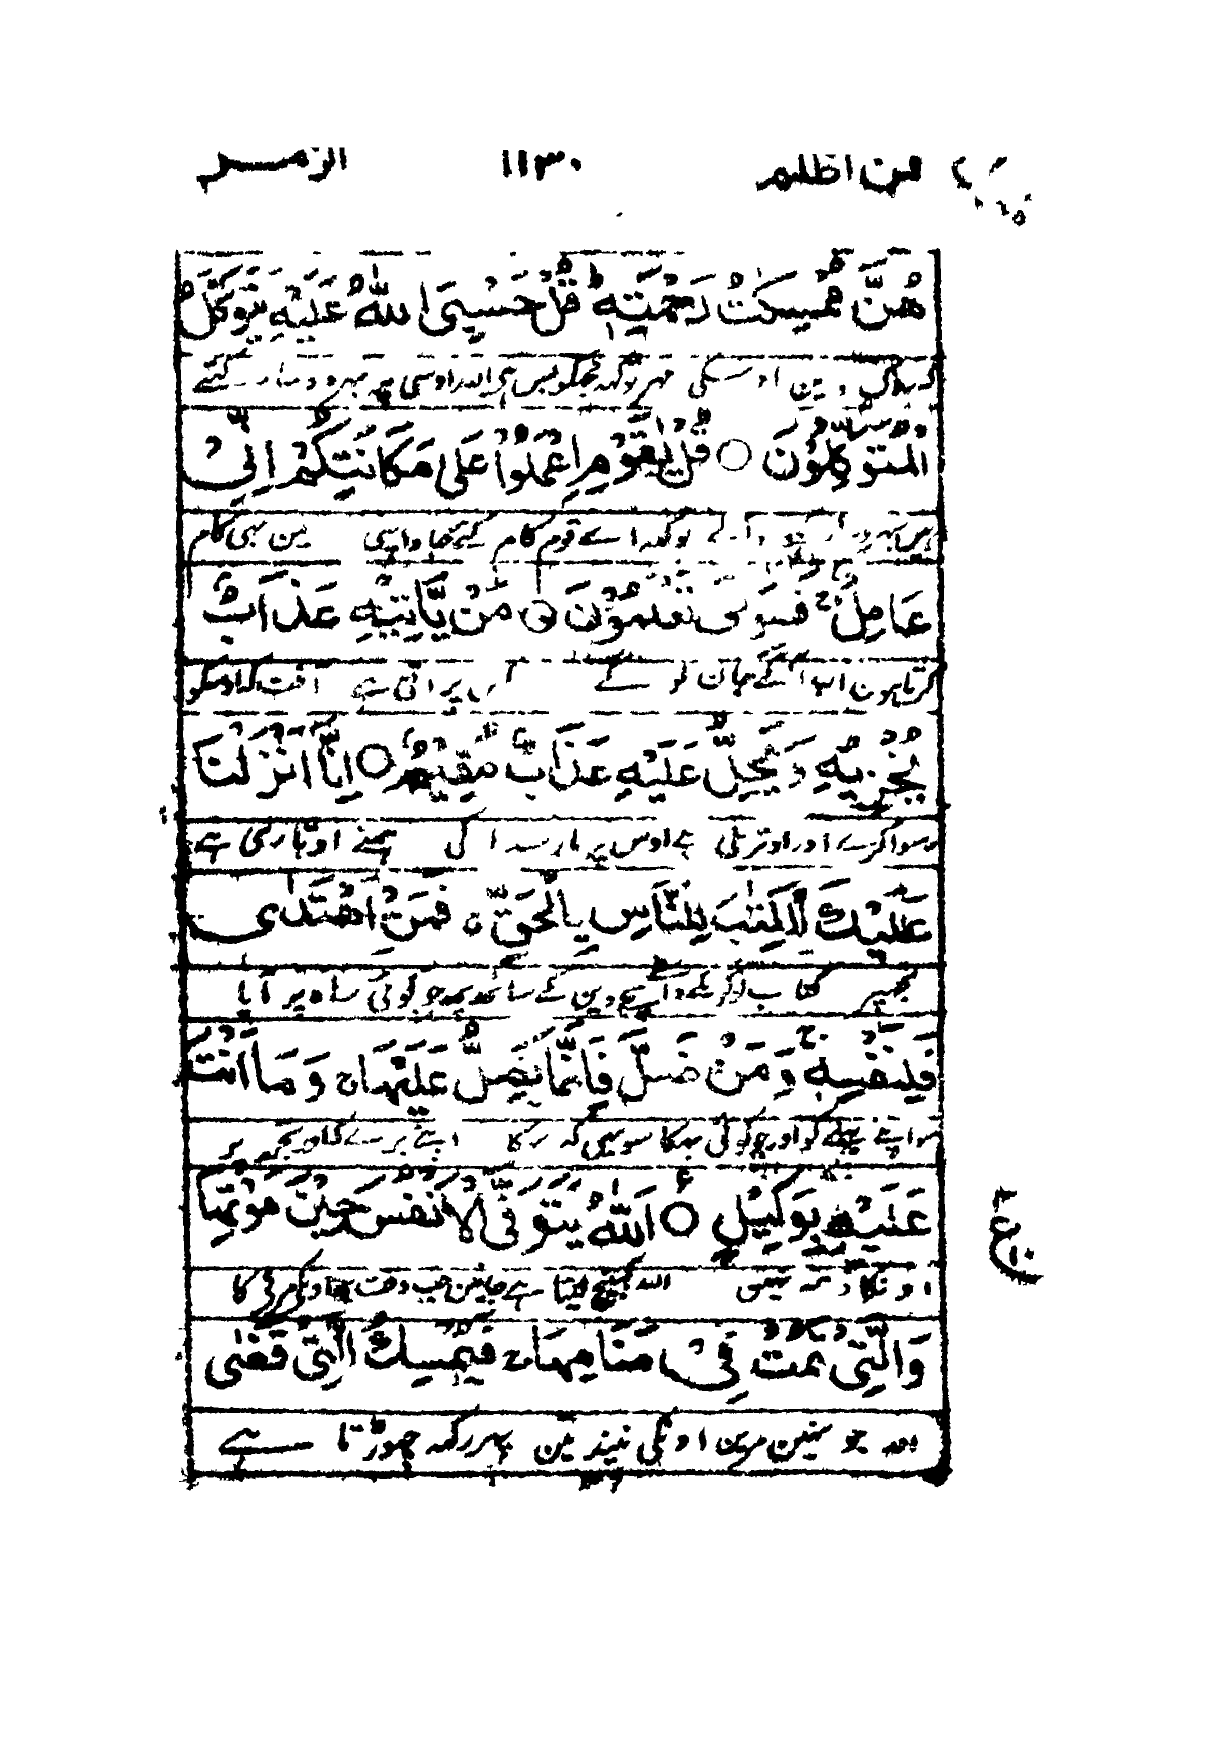 فمن اظلم ۱۱۳۰ الزمر
هُنَّ مُمْسِكٰتُ رَحْمَتِهٖ ؕ قُلْ حَسْبِيَ اللّٰهُ عَلَيْهِ يَتَوَكَّلُ
کہ روک دین اوسکی مہر تو کہہ مجھکو بس ہی اللہ اوسی پر بہروسا رکہتے
الْمُتَوَكِّلُوْنَ ○ قُلْ يٰقَوْمِ اعْمَلُوْا عَلٰى مَكَانَتِكُمْ اِنِّيْ
تو کہہ اے قوم کام کیے جاو اپنی مین بہی کام
عَامِلٌ ۚ فَسَوْفَ تَعْلَمُوْنَ ○ مَنْ يَّاْتِيْهِ عَذَابٌ
کرتا ہون اب آگے جان لو گے کس پر آتی ہے آفت کہ اوسکو
يُّخْزِيْهِ وَيَحِلُّ عَلَيْهِ عَذَابٌ مُّقِيْمٌ ○ اِنَّاۤ اَنْزَلْنَا
رسوا کرے اور اوترتی ہے اوس پر مار سدا کی ہمنے اوتاری ہے
عَلَيْكَ الْكِتٰبَ لِلنَّاسِ بِالْحَقِّ ۚ فَمَنِ اهْتَدٰى
تجہپر کتاب لوگونکے واسطے سچے دین کے ساتھ پہر جو کوئی راہ پر آیا
فَلِنَفْسِهٖ ۚ وَمَنْ ضَلَّ فَاِنَّمَا يَضِلُّ عَلَيْهَا ۚ وَمَاۤ اَنْتَ
سو اپنے بہلے کو اور جو کوئی بہکا سو یہی کہ بہکا اپنے برے کو اور تجہہ پر
عَلَيْهِمْ بِوَكِيْلٍ ○ اَللّٰهُ يَتَوَفَّى الْاَنْفُسَ حِيْنَ مَوْتِهَا
اونکا ذمہ نہین اللہ کہینچ لیتا ہے جانین جب وقت ہو اونکے مرنی کا
وَالَّتِيْ لَمْ تَمُتْ فِيْ مَنَامِهَا ۚ فَيُمْسِكُ الَّتِيْ قَضٰى
اور جو نہین مرین اونکی نیند مین پہر رکہہ چہوڑتا ہے
ع